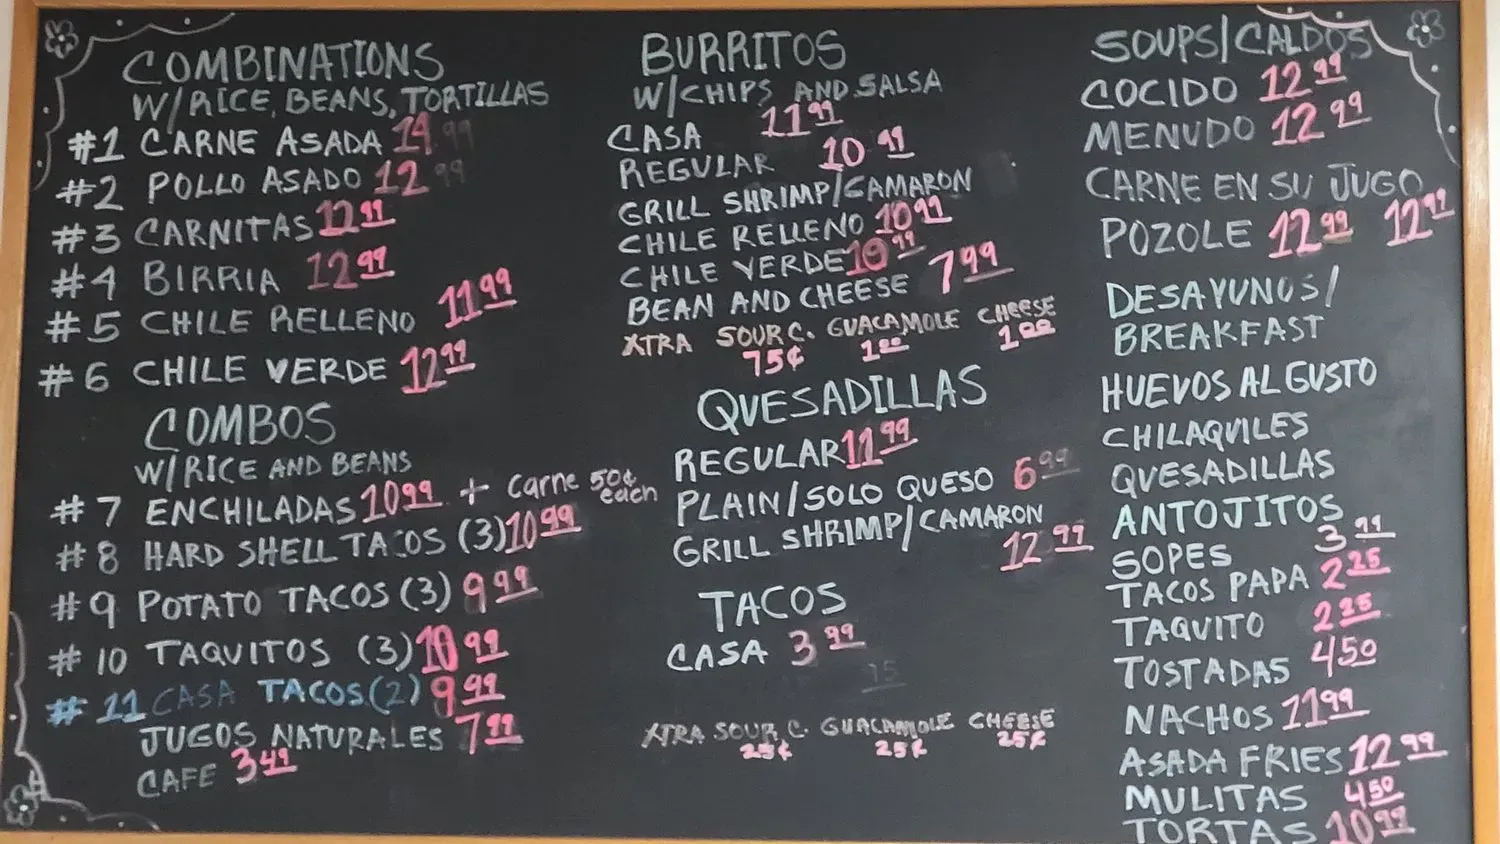 COMBINATIONS
W/RICE, BEANS, TORTILLAS
#1 CARNE ASADA 14.99
#2 POLLO ASADO 12 99
#3 CARNITAS 12 99
#4 BIRRIA 12 99
#5 CHILE RELLENO 11 99
#6 CHILE VERDE 12 99
COMBOS
W/RICE AND BEANS
#7 ENCHILADAS 10 99 + carne 50¢ each
#8 HARD SHELL TACOS (3) 10 99
#9 POTATO TACOS (3) 9 99
#10 TAQUITOS (3) 10 99
#11 CASA TACOS (2) 9 99
JUGOS NATURALES 7 99
CAFE 3 49
BURRITOS
W/CHIPS AND SALSA
CASA 11 99
REGULAR 10 99
GRILL SHRIMP/CAMARON
CHILE RELLENO 10 99
CHILE VERDE 10 99
BEAN AND CHEESE 7 99
XTRA SOUR C. GUACAMOLE CHEESE
75¢ 1 00 1 00
QUESADILLAS
REGULAR 11 99
PLAIN/SOLO QUESO 6 99
GRILL SHRIMP/CAMARON
12 99
TACOS
CASA 3 99
XTRA SOUR C. GUACAMOLE CHEESE
25¢ 25¢ 25¢
SOUPS/CALDOS
COCIDO 12 99
MENUDO 12 99
CARNE EN SU JUGO
POZOLE 12 99 12 99
DESAYUNOS/
BREAKFAST
HUEVOS AL GUSTO
CHILAQUILES
QUESADILLAS
ANTOJITOS
SOPES 3 99
TACOS PAPA 2 25
TAQUITO 2 25
TOSTADAS 4 50
NACHOS 11 99
ASADA FRIES 12 99
MULITAS 4 50
TORTAS 10 99